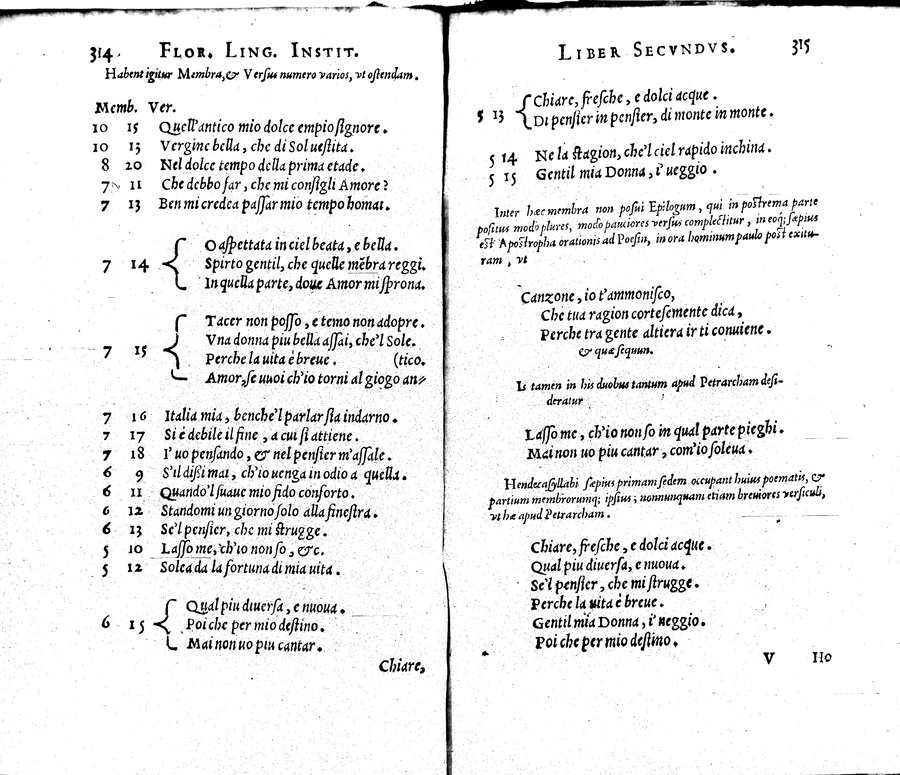 314. FLOR. LING. INSTIT.
Habent igitur Membra, & Versus numero varios, vt ostendam.
Memb. Ver.
10 15 Quell'antico mio dolce empio signore.
10 13 Vergine bella, che di Sol uestita.
8 20 Nel dolce tempo della prima etade.
7 11 Che debbo far, che mi consigli Amore?
7 13 Ben mi credea passar mio tempo homai.
O aspettata in ciel beata, e bella.
7 14 { Spirto gentil, che quelle mēbra reggi.
In quella parte, doue Amor mi sprona.
Tacer non posso, e temo non adopre.
Vna donna piu bella assai, che'l Sole.
7 15 { Perche la uita è breue. (tico.
Amor, se uuoi ch'io torni al giogo an=
7 16 Italia mia, benche'l parlar sia indarno.
7 17 Si è debile il fine, a cui si attiene.
7 18 I' uo pensando, & nel pensier m'assale.
6 9 S'il dißi mai, ch'io uenga in odio a quella.
6 11 Quando'l suaue mio fido conforto.
6 12 Standomi un giorno solo alla finestra.
6 13 Se'l pensier, che mi strugge.
5 10 Lasso me, ch'io non so, &c.
5 12 Solea da la fortuna di mia uita.
Qual piu diuersa, e nuoua.
6 15 { Poi che per mio destino.
Mai non uo piu cantar.
Chiare,
LIBER SECVNDVS. 315
5 13 { Chiare, fresche, e dolci acque.
Di pensier in pensier, di monte in monte.
5 14 Ne la stagion, che'l ciel rapido inchina.
5 15 Gentil mia Donna, i' ueggio.
Inter hæc membra non posui Epilogum, qui in postrema parte
positus modo plures, modo pauciores versus complectitur, in eoq; sæpius
est Apostropha orationis ad Poesin, in ora hominum paulo post exitu-
ram, vt
Canzone, io t'ammonisco,
Che tua ragion cortesemente dica,
Perche tra gente altiera ir ti conuiene.
& quæ sequun.
Is tamen in his duobus tantum apud Petrarcham desi-
deratur
Lasso me, ch'io non so in qual parte pieghi.
Mai non uo piu cantar, com'io soleua.
Hendecasyllabi sæpius primam sedem occupant huius poematis, &
partium membrorumq; ipsius; nonnunquam etiam breuiores versiculi,
vt hæ apud Petrarcham.
Chiare, fresche, e dolci acque.
Qual piu diuersa, e nuoua.
Se'l pensier, che mi strugge.
Perche la uita è breue.
Gentil mia Donna, i' ueggio.
Poi che per mio destino.
V Ho